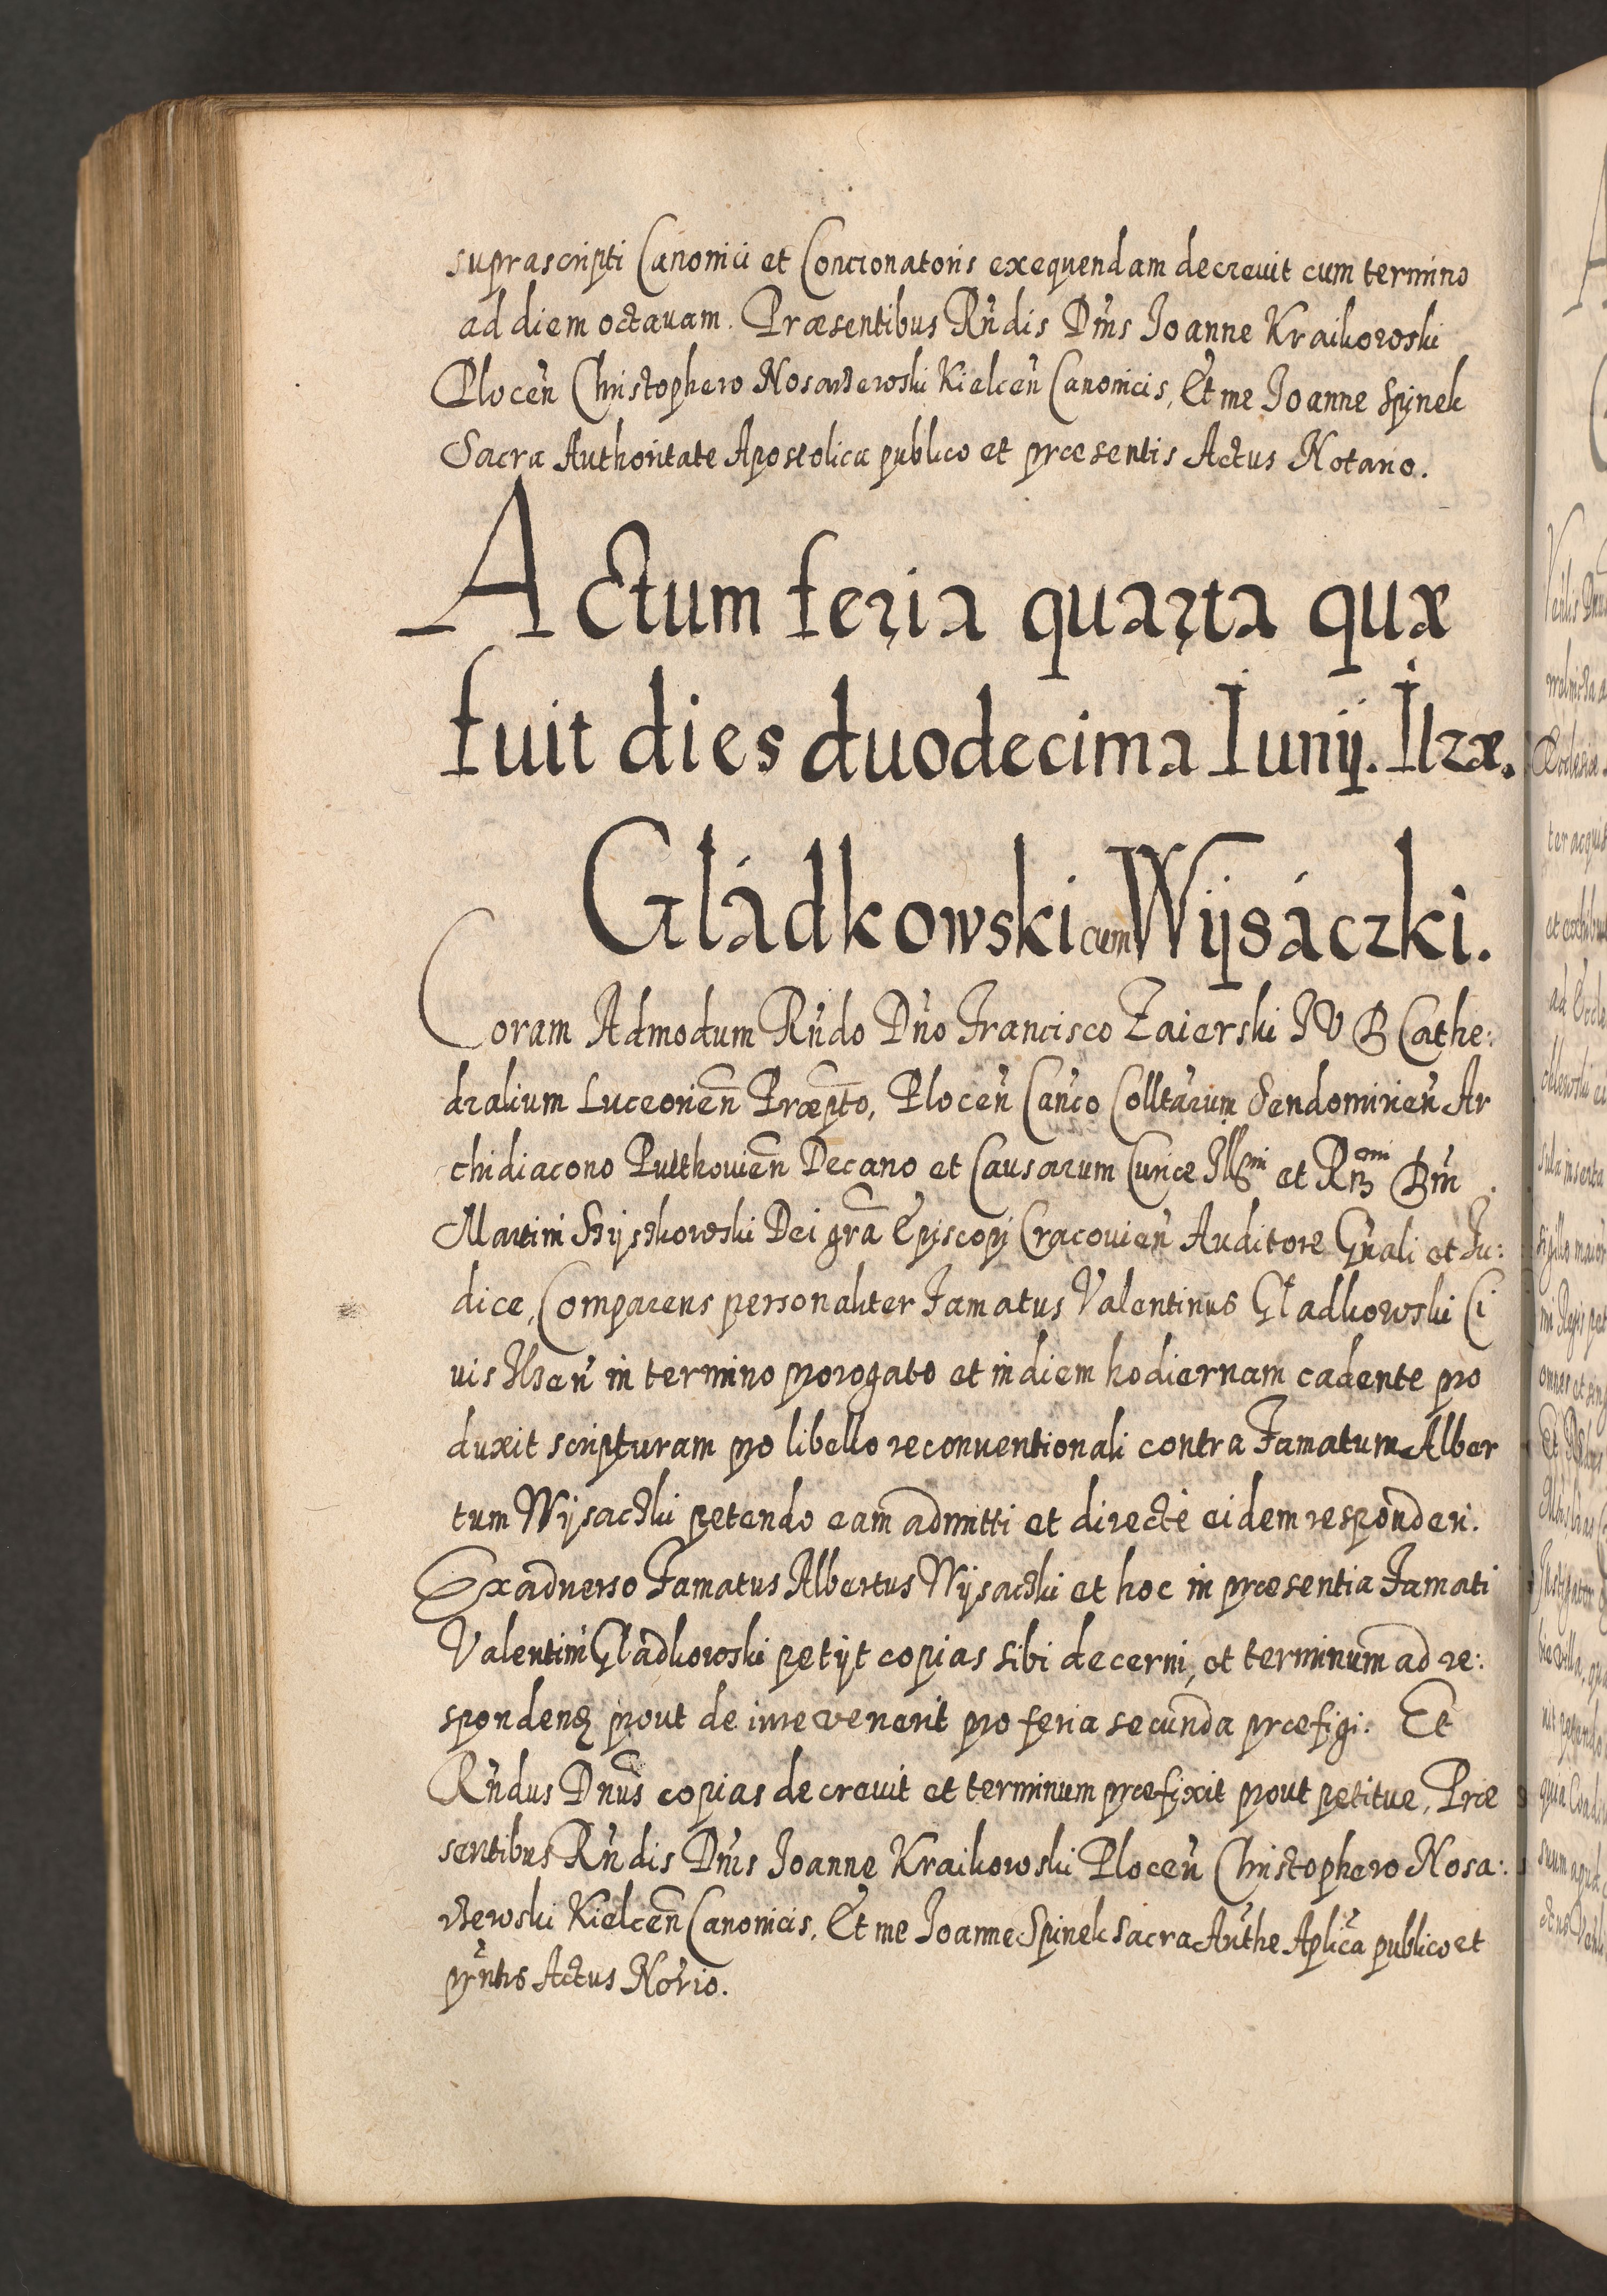 suprascripti Canonici et Concionatoris exequendam decrevit cum termino
ad diem octavam. Præsentibus Rñdis Dñis Joanne Kraikowski
Plocen̄ Christophero Nosarzewski Kielcen̄ Canonicis, Et me Joanne Spinek
Sacra Authoritate Apostolica publico et præsentis Actus Notario.
Actum feria quarta quæ
fuit dies duodecima Iunij. Ilzæ.
Gládkowski cum Wijsáczki.
Coram Admodum Rñdo Dño Francisco Zaierski I V D Cathe:
dralium Luceorien̄ Præpto, Plocen̄ Canco Colltarum Sendomirien̄ Ar
chidiacono Pulthovien̄ Decano et Causarum Curiæ Illmi et Rmi Dñi
Martini Szyszkowski Dei gr̄a Episcopi Cracovien̄ Auditore Gn̄ali et Ju:
dice, Comparens personaliter Famatus Valentinus Gladkowski Ci
vis Ilzen̄ in termino prorogato et in diem hodiernam cadente pro
duxit scripturam pro libello reconventionali contra Famatum Alber
tum Wijsaczki petendo eam admitti et directè eidem responderi.
Ex adverso Famatus Albertus Wijsaczki et hoc in præsentia Famati
Valentini Gladkowski petijt copias sibi decerni, et terminum ad re:
spondenᵭ prout de iure venerit pro feria secunda præfigi. Et
Rñdus Dñus copias decrevit et terminum præfixit prout petitur, Præ
sentibus Rñdis Dñis Joanne Kraikowski Plocen̄ Christophero Nosa:
rzewski Kielcen̄ Canonicis, Et me Joanne Spinek Sacra Auth̄e Aplic̄a publico et
pn̄tis Actus Norio.